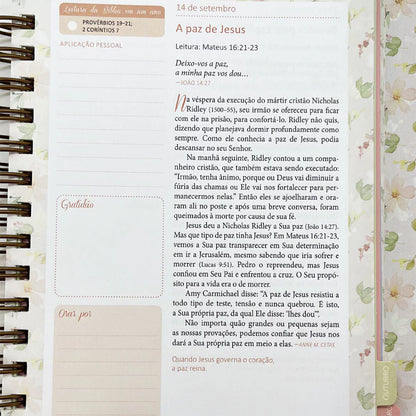 Leitura da Bíblia em um ano
PROVÉRBIOS 19–21;
2 CORÍNTIOS 7
APLICAÇÃO PESSOAL
Gratidão
Orar por
14 de setembro
A paz de Jesus
Leitura: Mateus 16:21-23
Deixo-vos a paz,
a minha paz vos dou…
—JOÃO 14:27
Na véspera da execução do mártir cristão Nicholas
Ridley (1500–55), seu irmão se ofereceu para ficar
com ele na prisão, para confortá-lo. Ridley não quis,
dizendo que planejava dormir profundamente como
sempre. Como ele conhecia a paz de Jesus, podia
descansar no seu Senhor.
Na manhã seguinte, Ridley contou a um compa-
nheiro cristão, que também estava sendo executado:
“Irmão, tenha ânimo, porque ou Deus vai diminuir a
fúria das chamas ou Ele vai nos fortalecer para per-
manecermos nelas.” Então eles se ajoelharam e ora-
ram ali no poste e após uma breve conversa, foram
queimados à morte por causa de sua fé.
Jesus deu a Nicholas Ridley a Sua paz (João 14:27).
Mas que tipo de paz tinha Jesus? Em Mateus 16:21-23,
vemos a Sua paz transparecer em Sua determinação
em ir a Jerusalém, mesmo sabendo que iria sofrer e
morrer (Lucas 9:51). Pedro o repreendeu, mas Jesus
confiou em Seu Pai e enfrentou a cruz. O Seu propó-
sito para a vida era o de morrer.
Amy Carmichael disse: “A paz de Jesus resistiu a
todo tipo de teste, tensão e nunca quebrou. É isto,
a Sua própria paz, da qual Ele disse: ‘lhes dou’”.
Não importa quão grandes ou pequenas sejam
as nossas provações, podemos confiar que Jesus nos
dará a Sua própria paz em meio a elas. —ANNE M. CETAS
Quando Jesus governa o coração,
a paz reina.
OUTUBRO